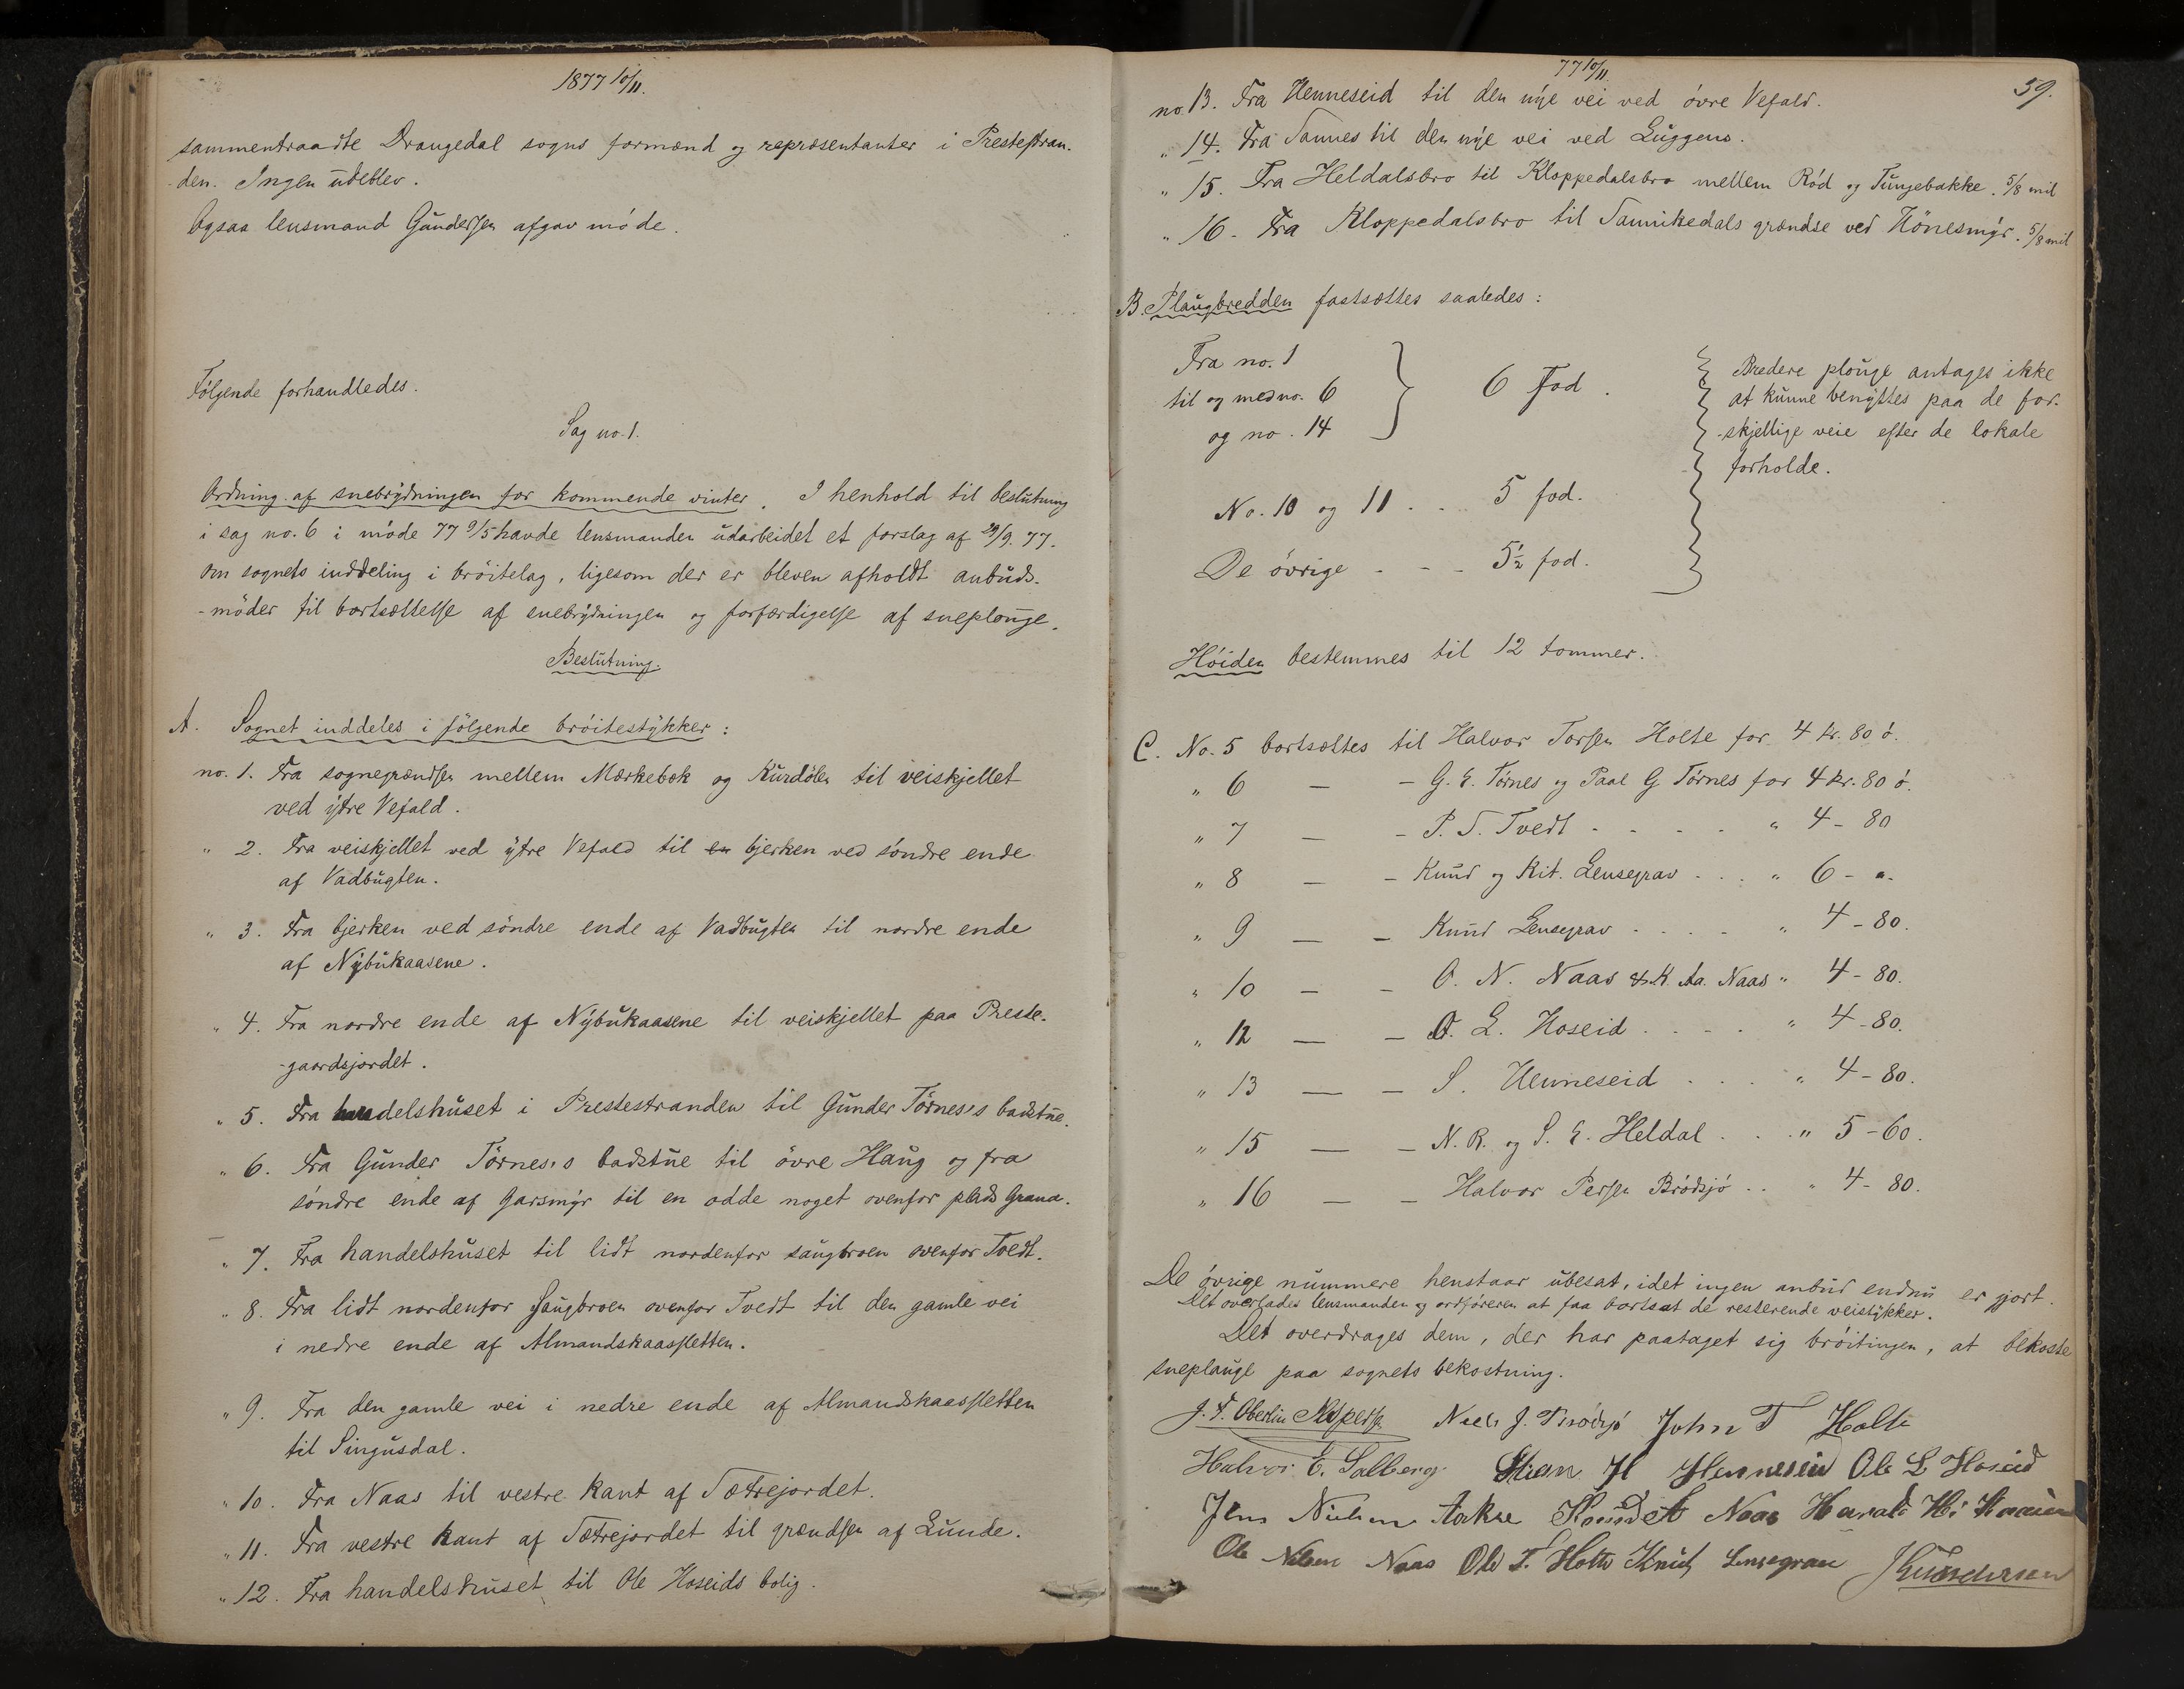 1877 10/11.
sammentraadte Drangedal sogns formænd og repræsentanter i Prestestran-
-den. Ingen udeblev.
Ogsaa lensmand Gundersen afgav møde.
Følgende forhandledes.
Sag no. 1.
Ordning af snebrydningen for kommende vinter. I henhold til beslutning
i sag no. 6 i møde 77 9/5 havde lensmanden udarbeidet et forslag af 29/9. 77.
om sognets inddeling i brøitelag, ligesom der er bleven afholdt anbuds-
-møder til bortsættelse af snebrydningen og forfærdigelse af sneplouge.
Beslutning.
A. Sognet inddeles i følgende brøitestykker:
no. 1. Fra sognegrændsen mellem Mærkebæk og Kurdølen til veiskjellet
ved ytre Vefald.
" 2. Fra veiskjellet ved ytre Vefald til en bjerken ved søndre ende
af Vadbugten.
" 3. Fra bjerken ved søndre ende af Vadbugten til nordre ende
af Nybukaasene.
" 4. Fra nordre ende af Nybukaasene til veiskjellet paa Preste-
-gaardsjordet.
" 5. Fra handelshuset i Prestestranden til Gunder Tørnes's badstue.
" 6. Fra Gunder Tørnes's badstue til øvre Haug og fra
søndre ende af Garsmyr til en odde noget ovenfor plads Grana.
" 7. Fra handelshuset til lidt nordenfor saugbroen ovenfor Tvedt.
" 8. Fra lidt nordenfor Saugbroen ovenfor Tvedt til den gamle vei
i nedre ende af Almandskaassletten.
" 9. Fra den gamle vei i nedre ende af Almandskaassletten
til Singusdal.
" 10. Fra Naas til vestre kant af Sætrejordet.
" 11. Fra vestre kant af Sætrejordet til grændsen af Lunde.
" 12. Fra handelshuset til Ole Hoseids bolig.
77 10/11.
59.
no. 13. Fra Henneseid til den nye vei ved øvre Vefald.
" 14. Fra Sannes til den nye vei ved Luggens.
" 15. Fra Heldalsbro til Kloppedalsbro mellem Rød og Tungebakke. 5/8 mil
" 16. Fra Kloppedalsbro til Sannikedals grændse ved Hønesmyr. 5/8 mil
B. Plaugbredden fastsættes saaledes:
Fra no. 1
til og med no. 6
og no. 14
6 Fod.
No. 10 og 11 . . . 5 fod.
De øvrige - - - 5 1/2 fod.
Bredere plouge antages ikke
at kunne benyttes paa de for-
-skjellige veie efter de lokale
forholde.
Høiden bestemmes til 12 tommer.
C. No. 5 bortsættes til Halvor Torsen Holte for 4 kr. 80 ø.
" 6 — - G. E. Tørnes og Paal G Tørnes for 4 kr. 80 ø.
" 7 — - P. T. Tvedt - - - - " 4 - 80
" 8 — - Knud og Kit. Lensegrav . . . " 6 - ".
" 9 — - Knud Lensegrav . . . . " 4 - 80.
" 10 — - O. N. Naas & K. Aa. Naas " 4 - 80.
" 12 — - O. L. Hoseid . . . . " 4 - 80.
" 13 — - S. Henneseid . . . " 4 - 80.
" 15 — - N. R. og S. E. Heldal . . . " 5 - 60.
" 16 — - Halvor Persen Brødsjø . . " 4 - 80.
De øvrige nummere henstaar ubesat, idet ingen anbud endnu er gjort.
Det overlades lensmanden og ordføreren at faa bortsat de resterende veistykker.
Det overdrages dem, der har paataget sig brøitingen, at bekoste
sneplauge paa sognets bekostning.
J. F. Oberlin Niels J. Brødsjø John T Holte
Halvor E. Solberg Stian H Henneseid Ole L Hoseid
Jens Nielsen Aakre Knud A Naas
Ole Nilsen Naas Ole T. Holte Knut Lensegrav Gundersen